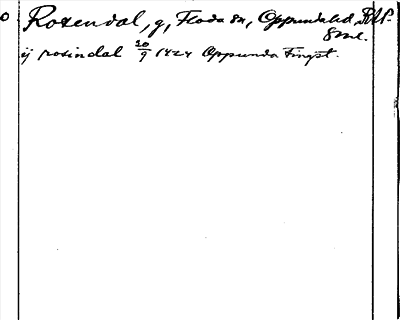 Rosendal, g, Floda sn, Oppunda hd, RAP.
Sml.
ij rosindal 20/9 1424 Oppunda tingst.